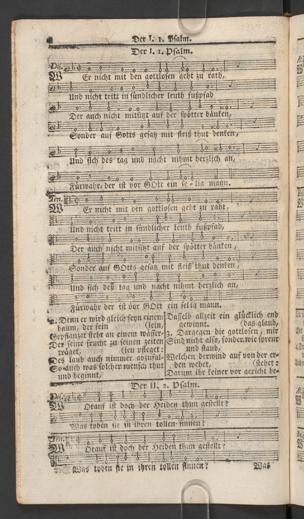 Der I. 1. Psalm.
Der I. 1. Psalm.
Dis.
WEr nicht mit den gottlosen geht zu rath,
Und nicht tritt in sündlicher leuth fußpfad
Der auch nicht mitsitzt auf der spötter bäncken,
Sonder auf Gotts gesatz mit fleiß thut dencken,
Und sich des tag und nacht nihmt herzlich an,
Fürwahr, der ist vor GOtt ein se-lig mann.
Ten.
WEr nicht mit den gottlosen geht zu raht,
Und nicht tritt in sündlicher leuth fußpfad,
Der auch nicht mitsitzt auf der spötter bäncken,
Sonder auf GOtts gesatz mit fleiß thut dencken,
Und sich des tag und nacht nihmt herzlich an,
Fürwahr der ist vor GOtt ein selig mann.
2. Denn er wird gleich seyn einem
baum, der fein (sein,
Gepflanzet steht an einem wasser-
Der seine frucht zu seinen zeiten
träget, (ten pfleget:
Des laub auch nimmer abzufal-
So auch was solcher mensch thut
und beginnt,
Dasselb allzeit ein glücklich end
gewinnt.
3. Dargegen die gottlosen, mit
Sind nicht also, sonder wie spreur
und staub,
Welchen der wind auf von der er-
den wehet, (stehet:
Darum ihr keiner vor gericht be-
Der II. 2. Psalm.
WOrauf ist doch der Heiden thun gestellt?
Was toben sie in ihren tollen sinnen?
Ten.
WOrauf ist doch der Heiden thun gestellt?
Was toben sie in ihren tollen sinnen? Was